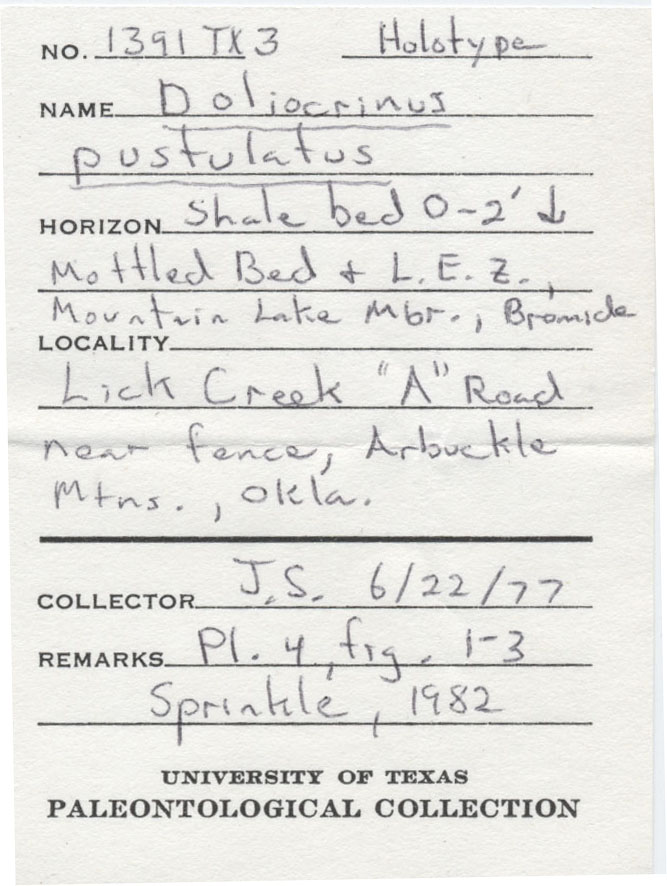 NO. 1391 TX 3 Holotype
NAME Doliocrinus
pustulatus
HORIZON Shale bed 0-2' ↓
Mottled Bed + L.E.Z.,
Mountain Lake Mbr., Bromide
LOCALITY
Lick Creek "A" Road
near fence, Arbuckle
Mtns., Okla.
COLLECTOR J.S. 6/22/77
REMARKS Pl. 4, fig. 1-3
Sprinkle, 1982
UNIVERSITY OF TEXAS
PALEONTOLOGICAL COLLECTION